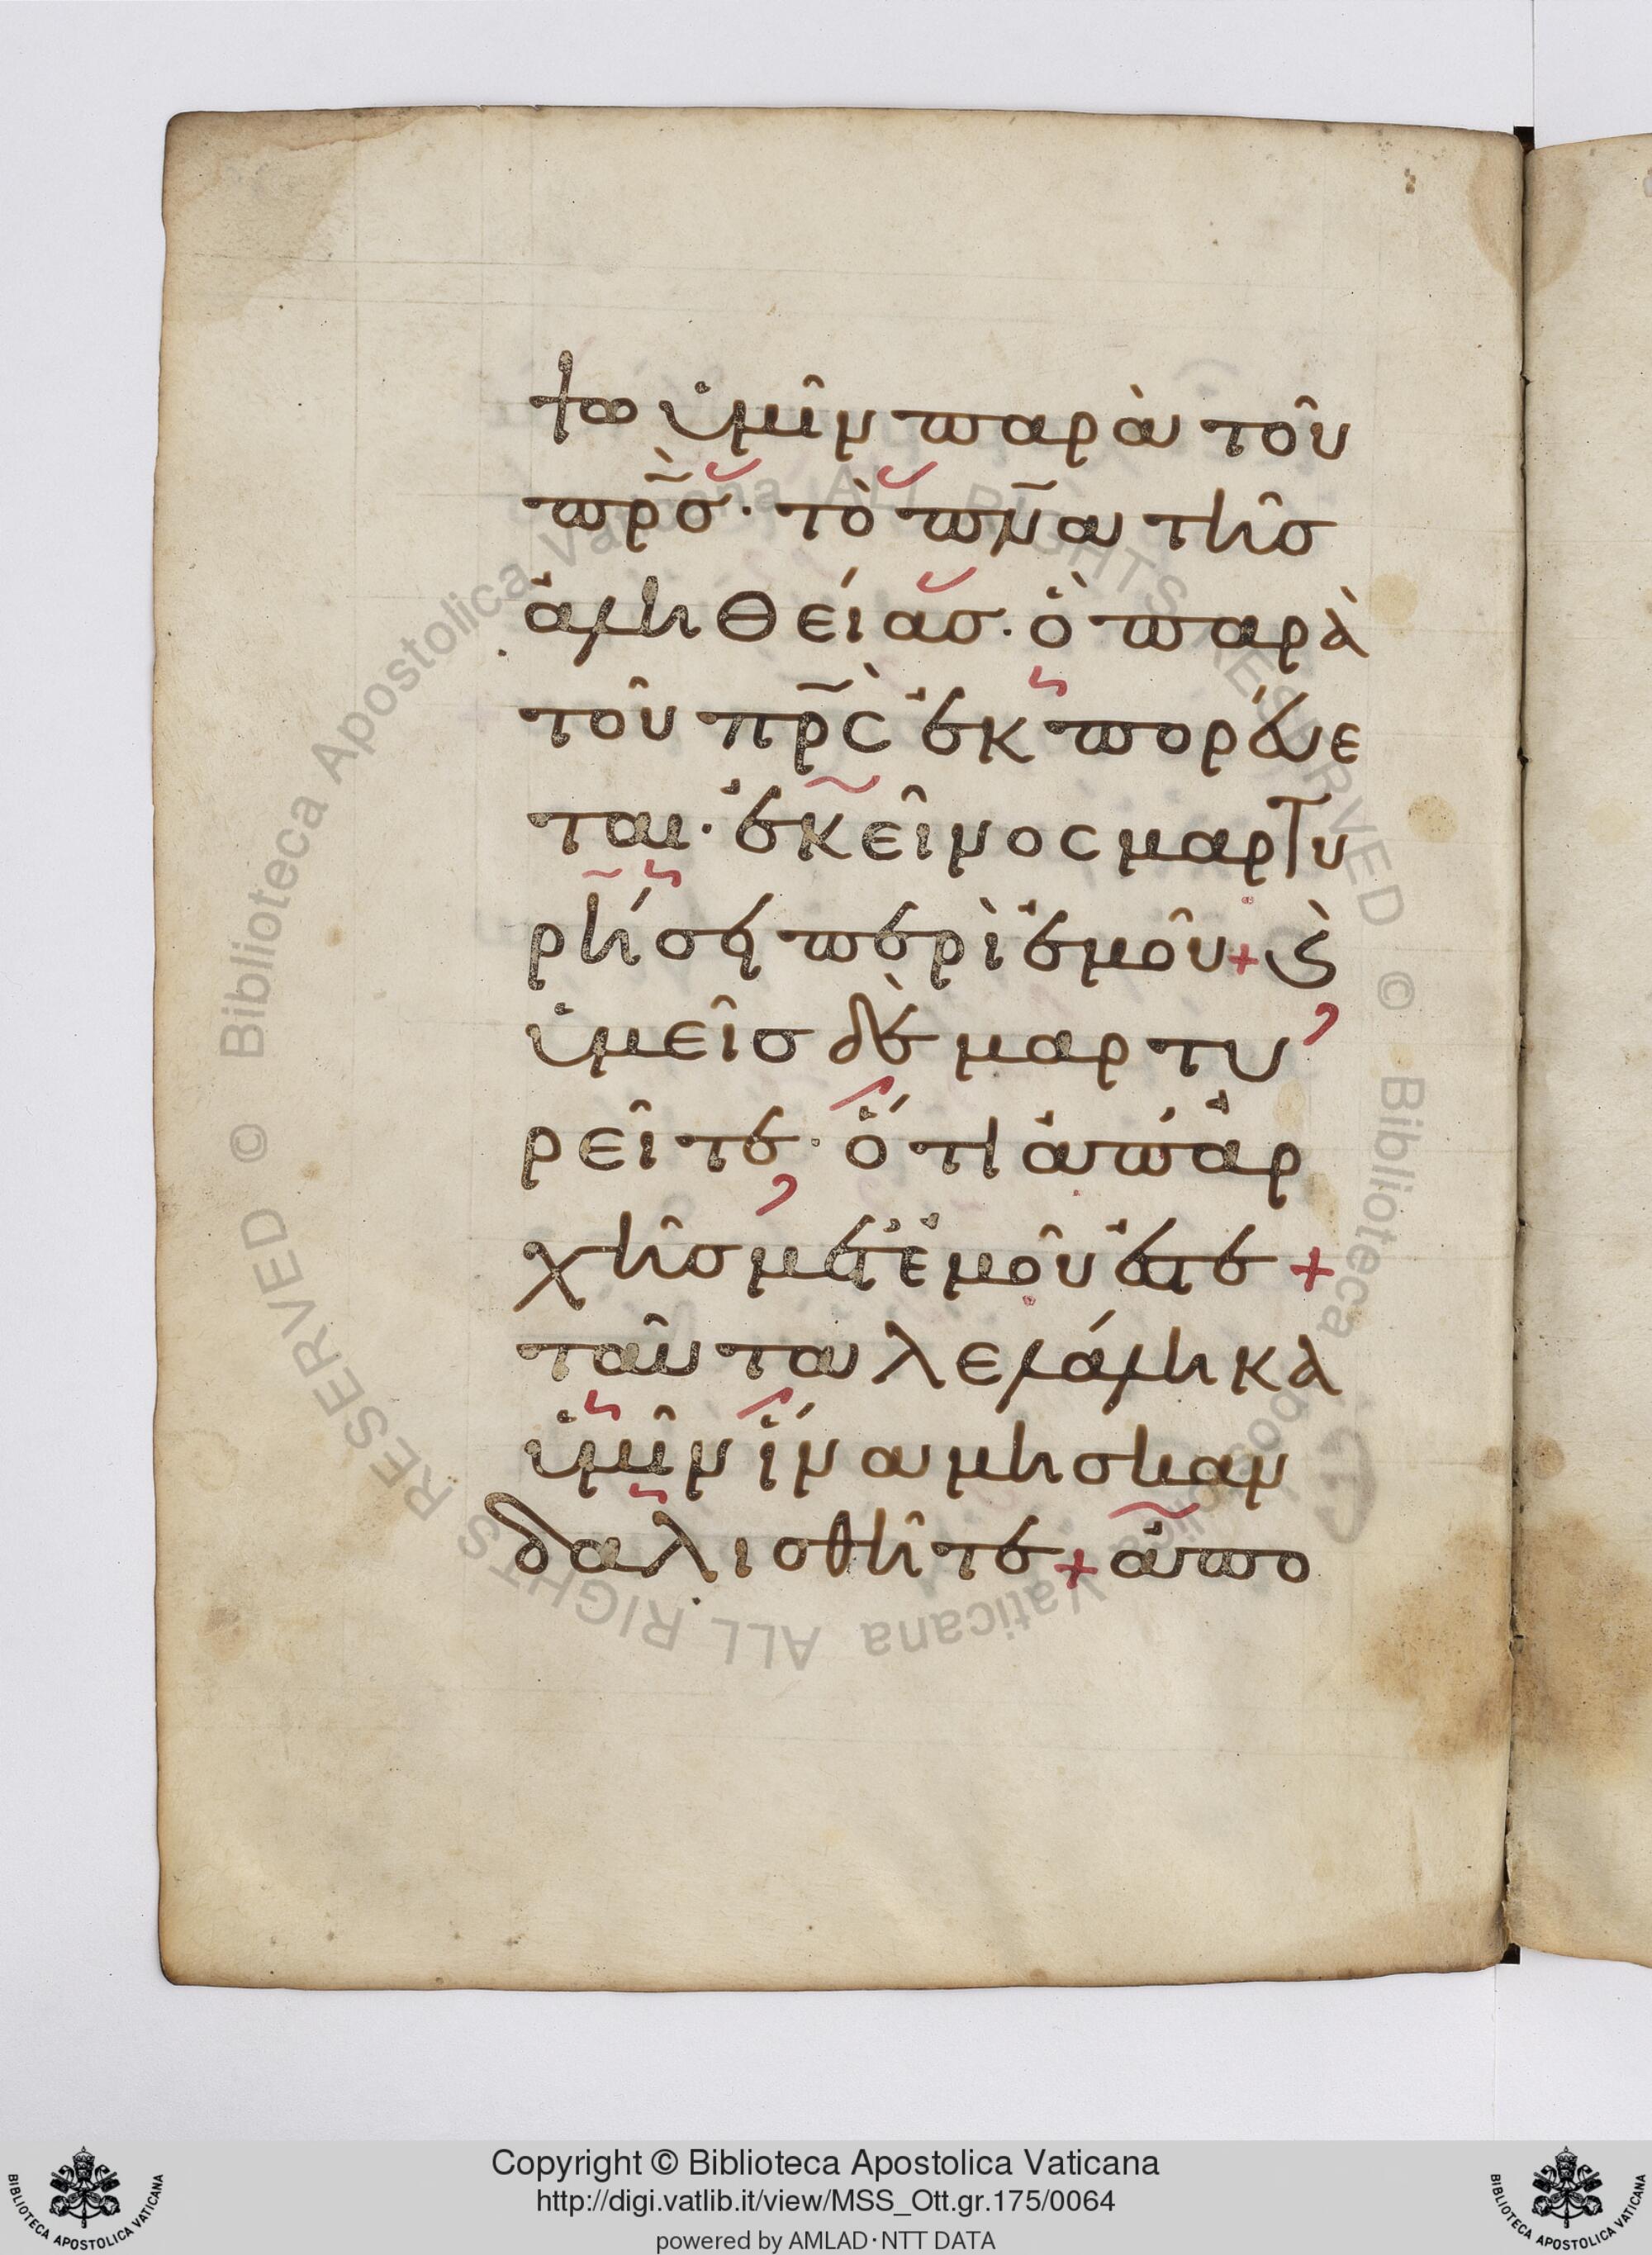 ψω ὑμῖν παρὰ τοῦ
πρ̅ς̀· τὸ πν̅α τῆς
ἀληθείας· ὃ παρὰ
τοῦ πρ̅ς̀ ἐκπορεύε
ται· ἐκεῖνος μαρτυ
ρήσει περὶ ἐμοῦ + ϗ̀
ὑμεῖς δὲ μαρτυ
ρεῖτε· ὅτι ἀπ' ἀρ
χῆς μετ' ἐμοῦ ἐστε +
ταῦτα λελάληκα
ὑμῖν ἵνα μη σκαν
δαλισθῆτε + ἀπο
© Biblioteca Apostolica Vaticana ALL RIGHTS RESERVED © Biblioteca Apostolica Vaticana ALL RIGHTS RESERVED
Copyright © Biblioteca Apostolica Vaticana
http://digi.vatlib.it/view/MSS_Ott.gr.175/0064
powered by AMLAD·NTT DATA
BIBLIOTECA APOSTOLICA VATICANA
BIBLIOTECA APOSTOLICA VATICANA